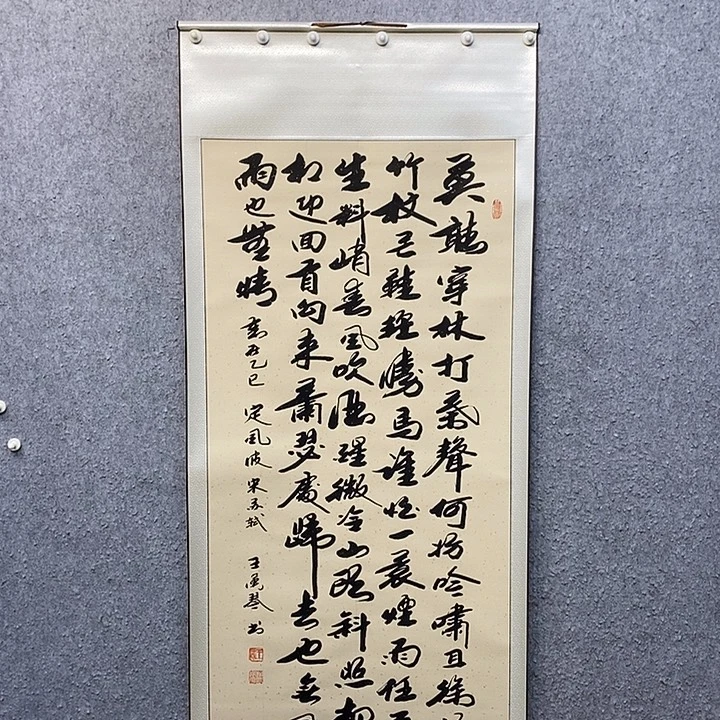 莫聽穿林打葉聲何妨吟嘯且徐
竹杖芒鞋輕勝馬誰怕一蓑煙雨任
生料峭春風吹酒醒微冷山頭斜照却
相迎回首向來蕭瑟處歸去也無
雨也無晴 歲在乙巳 定風波 宋蘇軾 王萬琴书